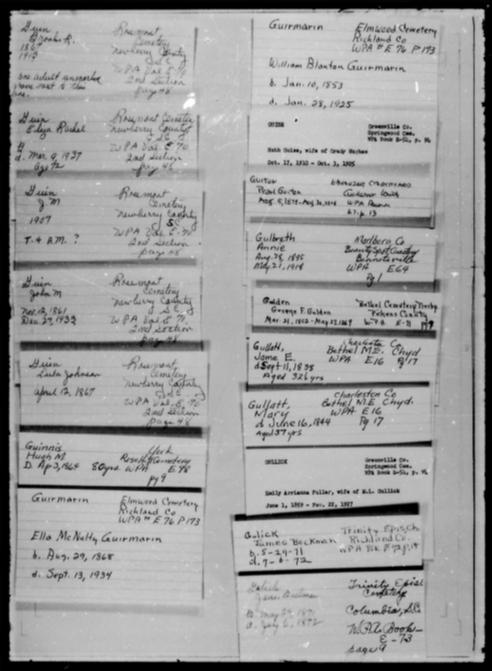 Guin
Brooks R.
1867
1913
one adult unmarked
grave next to this
one.
Rosemont
Cemetery
Newberry County
S.C.
WPA Vol. E 76
2nd Section
page 48
Guin
Eliza Rachel
d. Mar 9, 1937
Age 72
Rosemont Cemetery
Newberry County
S.C.
WPA Vol. E 76
2nd Section
page 48
Guin
J M
1907
T. & A.M. ?
Rosemont
Cemetery
Newberry County
S.C.
WPA Vol. E 76
2nd Section
page 48
Guin
John M
Nov. 12, 1861
Dec. 27, 1932
Rosemont
Cemetery
Newberry County
S.C.
WPA Vol. E 76
2nd Section
page 48
Guin
Lula Johnson
April 12, 1867
Rosemont
Cemetery
Newberry County
S.C.
WPA Vol. E 76
2nd Section
page 48
Guinnis
Hugh M
D. Ap 3, 1864 80yrs.
York
Cemetery
WPA E 98
pg 9
Guirmarin
Elmwood Cemetery
Richland Co
WPA # E 76 P 173
Ella McNalty Guirmarin
b. Aug. 29, 1868
d. Sept. 13, 1934
Guirmarin
Elmwood Cemetery
Richland Co
WPA # E 76 P 173
William Blanton Guirmarin
b. Jan. 10, 1853
d. Jan. 28, 1925
GUISE
Greenville Co.
Springwood Cem.
WPA Book E-51, p. 94
Ruth Guise, wife of Grady Hughes
Oct. 17, 1910 - Oct. 3, 1925
Guiton
Pearl Guiton
WPA
p. 13
Gulbreth
Annie
Aug. 28, 1895
May 21, 1918
Marlboro Co
Beauty Spot Cemetery
Bennettsville
WPA E 64
Pg 1
Gulden
George F. Gulden
Mar. 31, 1862 - May 27, 1867
"Bethel Cemetery"
"Pickens County"
WPA E-71 P 9
Gullett,
Jame E.
d Sept 11, 1835
Aged 32 6 yrs
Charleston Co
Bethel M.E. Chyd
WPA E16 Pg 17
Gullatt,
Mary
d June 16, 1844
aged 37 yrs
Charleston Co
Bethel M.E Chyd.
WPA E16
Pg 17
GULLICK
Greenville Co.
Springwood Cem.
WPA Book E-51, p. 94
Emily Arrianna Fuller, wife of M.L. Gullick
June 1, 1859 - Nov. 22, 1927
Gulick
James Beekman
b. 5-29-71
d. 7-6-72
Trinity Episch
Richland Co.
WPA Bk
Gulick
James Beekman
b. May 29, 1871
d. July 6, 1872
Trinity Episl
Cemetery
Columbia, S.C.
W.P.A. Book
E-73
page 9